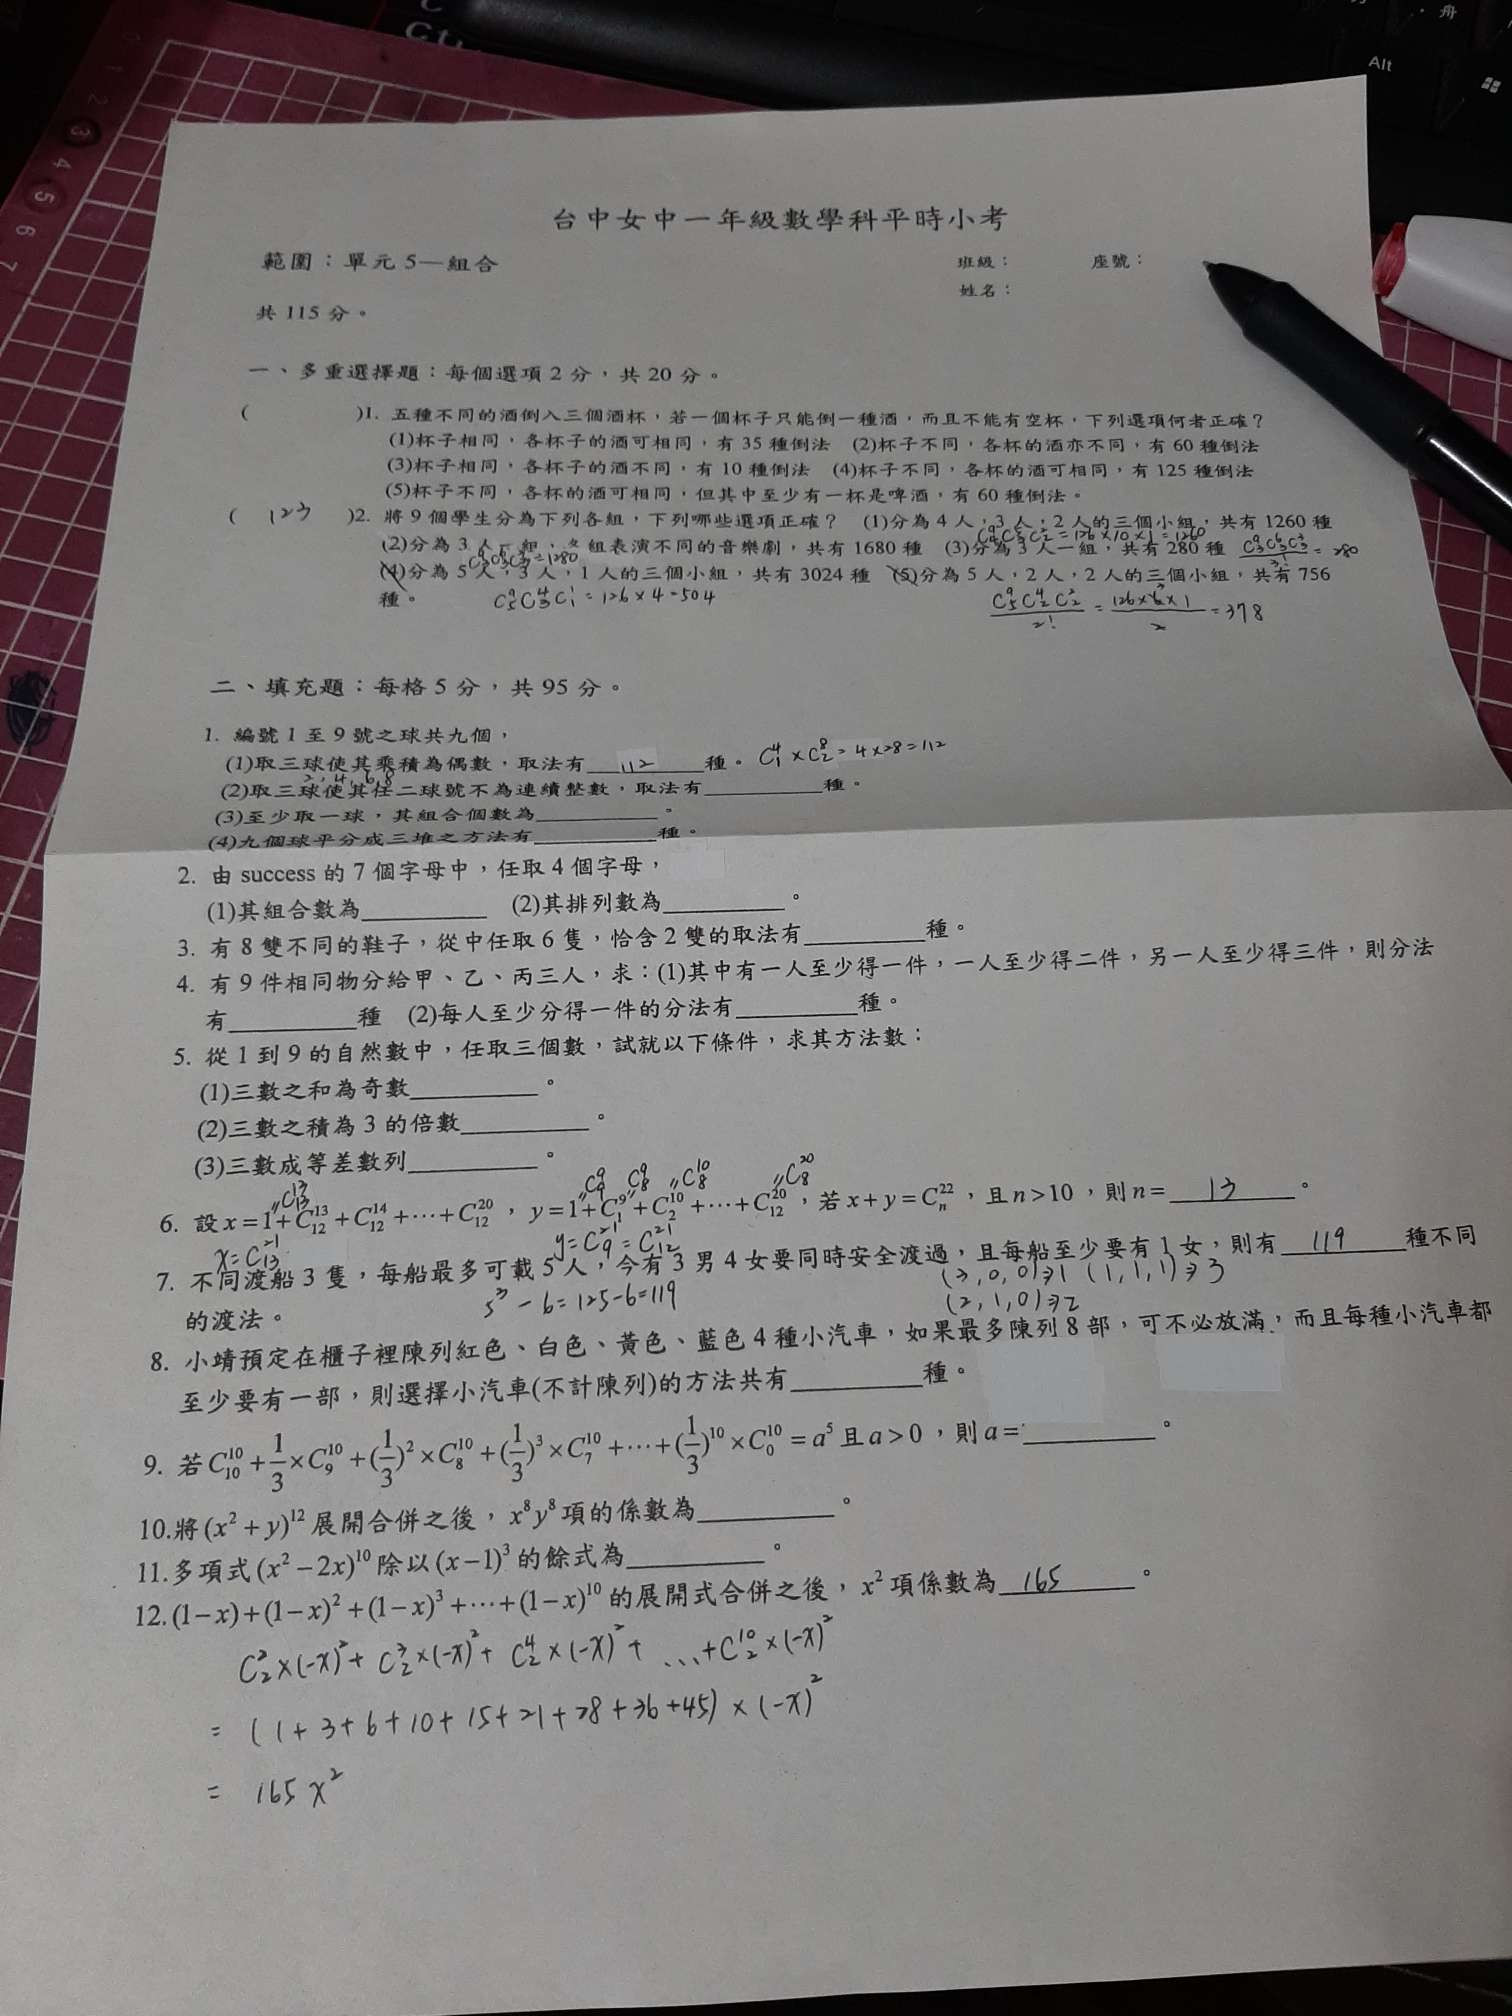 Alt
台中女中一年級數學科平時小考
範圍：單元 5—組合
班級： 座號：
姓名：
共 115 分。
一、多重選擇題：每個選項 2 分，共 20 分。
( )1. 五種不同的酒倒入三個酒杯，若一個杯子只能倒一種酒，而且不能有空杯，下列選項何者正確？
(1)杯子相同，各杯子的酒可相同，有 35 種倒法 (2)杯子不同，各杯的酒亦不同，有 60 種倒法
(3)杯子相同，各杯子的酒不同，有 10 種倒法 (4)杯子不同，各杯的酒可相同，有 125 種倒法
(5)杯子不同，各杯的酒可相同，但其中至少有一杯是啤酒，有 60 種倒法。
( 123 )2. 將 9 個學生分為下列各組，下列哪些選項正確？ (1)分為 4 人，3 人，2 人的三個小組，共有 1260 種
C⁹₄C⁵₃C²₂=126×10×1=1260
(2)分為 3 人一組，各組表演不同的音樂劇，共有 1680 種 (3)分為 3 人一組，共有 280 種 C⁹₃C⁶₃C³₃/3! = 280
C⁹₃C⁶₃C³₃=1280
(4)分為 5 人，3 人，1 人的三個小組，共有 3024 種 (5)分為 5 人，2 人，2 人的三個小組，共有 756
種。 C⁹₅C⁴₃C¹₁=126×4=504 C⁹₅C⁴₂C²₂/2! = 126×6×1/2 =378
二、填充題：每格 5 分，共 95 分。
1. 編號 1 至 9 號之球共九個，
(1)取三球使其乘積為偶數，取法有 112 種。 C⁴₁×C⁸₂=4×28=112
2,4,6,8
(2)取三球使其任二球號不為連續整數，取法有____種。
(3)至少取一球，其組合個數為____。
(4)九個球平分成三堆之方法有____種。
2. 由 success 的 7 個字母中，任取 4 個字母，
(1)其組合數為____ (2)其排列數為____。
3. 有 8 雙不同的鞋子，從中任取 6 隻，恰含 2 雙的取法有____種。
4. 有 9 件相同物分給甲、乙、丙三人，求：(1)其中有一人至少得一件，一人至少得二件，另一人至少得三件，則分法
有____種 (2)每人至少分得一件的分法有____種。
5. 從 1 到 9 的自然數中，任取三個數，試就以下條件，求其方法數：
(1)三數之和為奇數____。
(2)三數之積為 3 的倍數____。
(3)三數成等差數列____。
C¹³₁₃ C⁹₉ C⁹₈ C¹⁰₈ C²⁰₈
6. 設 x=1+C¹³₁₂+C¹⁴₁₂+⋯+C²⁰₁₂，y=1+C⁹₁+C¹⁰₂+⋯+C²⁰₁₂，若 x+y=C²²ₙ，且 n>10，則 n= 13 。
x=C²¹₁₃ y=C²¹₉=C²¹₁₂
7. 不同渡船 3 隻，每船最多可載 5 人，今有 3 男 4 女要同時安全渡過，且每船至少要有 1 女，則有 119 種不同
的渡法。 5³-6=125-6=119 (3,0,0)⇒1 (1,1,1)⇒3
(2,1,0)⇒2
8. 小靖預定在櫃子裡陳列紅色、白色、黃色、藍色 4 種小汽車，如果最多陳列 8 部，可不必放滿，而且每種小汽車都
至少要有一部，則選擇小汽車(不計陳列)的方法共有____種。
9. 若 C¹⁰₁₀+1/3×C¹⁰₉+(1/3)²×C¹⁰₈+(1/3)³×C¹⁰₇+⋯+(1/3)¹⁰×C¹⁰₀=a⁵ 且 a>0，則 a=____。
10.將 (x²+y)¹² 展開合併之後，x⁸y⁸ 項的係數為____。
11.多項式 (x²−2x)¹⁰ 除以 (x−1)³ 的餘式為____。
12.(1−x)+(1−x)²+(1−x)³+⋯+(1−x)¹⁰ 的展開式合併之後，x² 項係數為 165 。
C²₂×(-x)²+C³₂×(-x)²+C⁴₂×(-x)²+…+C¹⁰₂×(-x)²
= (1+3+6+10+15+21+28+36+45)×(-x)²
= 165x²